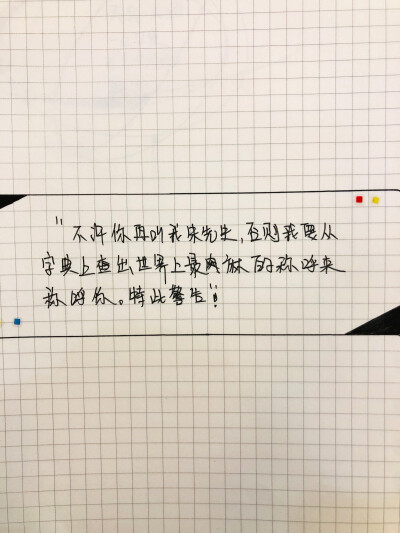 "不许你再叫我朱先生,否则我要从
字典上查出世界上最肉麻的称呼来
称呼你。特此警告"!